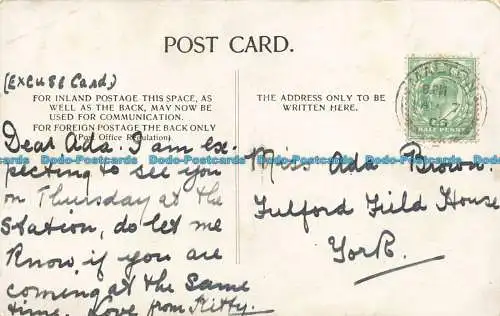 POST CARD.
(Excuse Card,)
FOR INLAND POSTAGE THIS SPACE, AS
WELL AS THE BACK, MAY NOW BE
USED FOR COMMUNICATION.
FOR FOREIGN POSTAGE THE BACK ONLY
(Post Office Regulation)
Dear Ada. I am ex-
pecting to see you
on Thursday at the
Station, do let me
Know if you are
coming at the same
time. Love from Kitty.
THE ADDRESS ONLY TO BE
WRITTEN HERE.
Miss Ada Brown.
Fulford Field House
York.
HALF PENNY